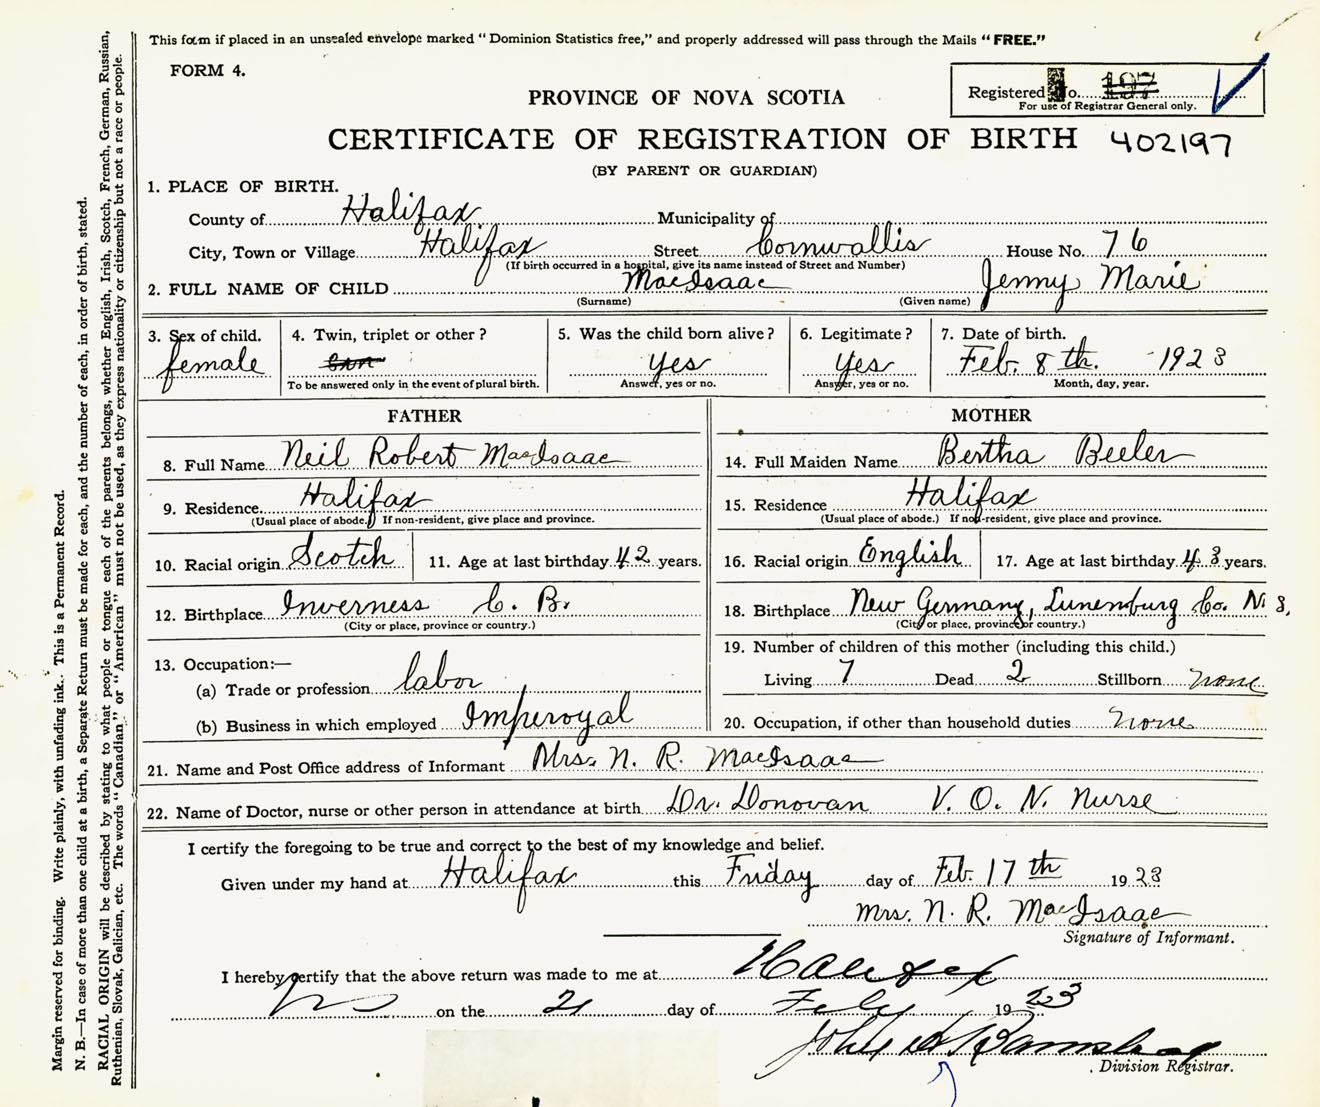 This form if placed in an unsealed envelope marked "Dominion Statistics free," and properly addressed will pass through the Mails "FREE."
FORM 4.
Registered No. 197
For use of Registrar General only.
PROVINCE OF NOVA SCOTIA
CERTIFICATE OF REGISTRATION OF BIRTH 402197
(BY PARENT OR GUARDIAN)
1. PLACE OF BIRTH.
County of Halifax Municipality of
City, Town or Village Halifax Street Cornwallis House No. 76
(If birth occurred in a hospital, give its name instead of Street and Number)
2. FULL NAME OF CHILD MacIsaac Jenny Marie
(Surname) (Given name)
3. Sex of child. 4. Twin, triplet or other? 5. Was the child born alive? 6. Legitimate? 7. Date of birth.
female yes yes Feb. 8th. 1923
To be answered only in the event of plural birth. Answer, yes or no. Answer, yes or no. Month, day, year.
FATHER MOTHER
8. Full Name Neil Robert MacIsaac 14. Full Maiden Name Bertha Beeler
9. Residence. Halifax 15. Residence Halifax
(Usual place of abode.) If non-resident, give place and province. (Usual place of abode.) If non-resident, give place and province.
10. Racial origin Scotch 11. Age at last birthday 42 years. 16. Racial origin English 17. Age at last birthday 43 years.
12. Birthplace Inverness C. B. 18. Birthplace New Germany, Lunenburg Co. N. S.
(City or place, province or country.) (City or place, province or country.)
13. Occupation:— 19. Number of children of this mother (including this child.)
(a) Trade or profession labor Living 7 Dead 2 Stillborn none
(b) Business in which employed Imperoyal 20. Occupation, if other than household duties none
21. Name and Post Office address of Informant Mrs. N. R. MacIsaac
22. Name of Doctor, nurse or other person in attendance at birth Dr. Donovan V. O. N. Nurse
I certify the foregoing to be true and correct to the best of my knowledge and belief.
Given under my hand at Halifax this Friday day of Feb. 17th 1923
Mrs. N. R. MacIsaac
Signature of Informant.
I hereby certify that the above return was made to me at Halifax
NS on the 21 day of Feby 1923
John
Division Registrar.
Margin reserved for binding. Write plainly, with unfading ink. This is a Permanent Record.
N. B.—In case of more than one child at a birth, a Separate Return must be made for each, and the number of each, in order of birth, stated.
RACIAL ORIGIN will be described by stating to what people or tongue each of the parents belongs, whether English, Irish, Scotch, French, German, Russian,
Ruthenian, Slovak, Galician, etc. The words "Canadian," or "American" must not be used, as they express nationality or citizenship but not a race or people.